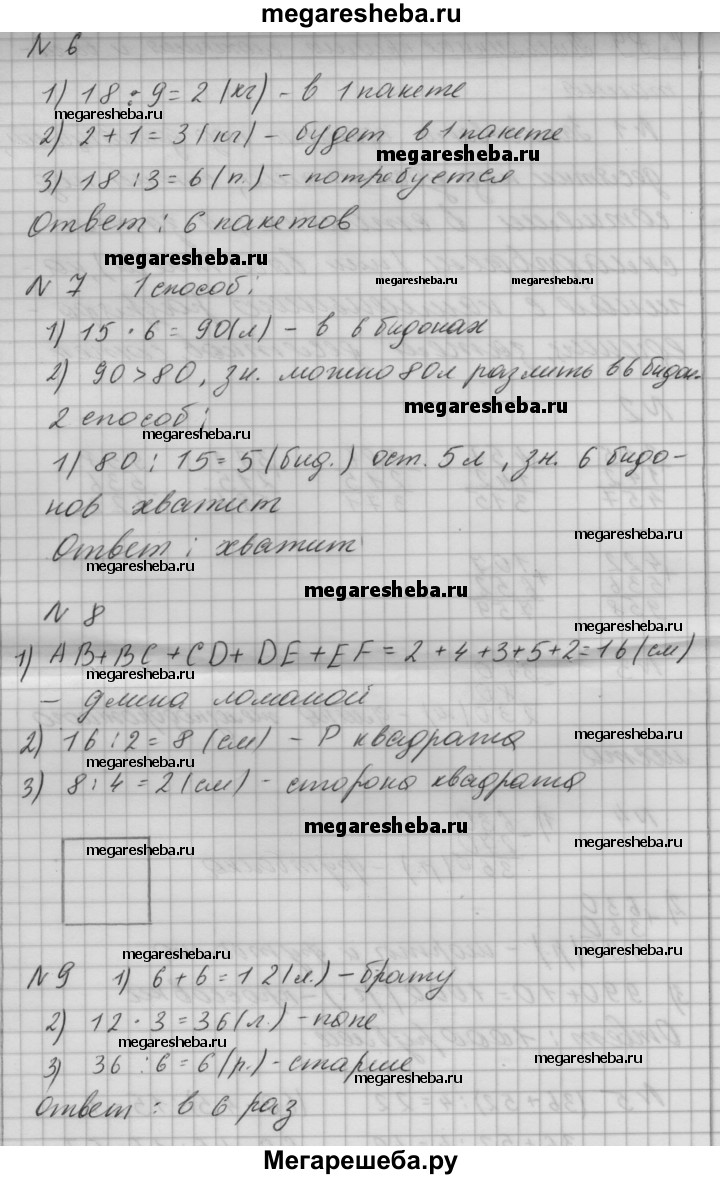 megaresheba.ru
N 6
1) 18 : 9 = 2 (кг) - в 1 пакете
megaresheba.ru
2) 2 + 1 = 3 (кг) - будет в 1 пакете
megaresheba.ru
megaresheba.ru
3) 18 : 3 = 6 (п.) - потребуется
Ответ : 6 пакетов
megaresheba.ru
N 7 1 способ :
megaresheba.ru megaresheba.ru
1) 15 · 6 = 90 (л) - в 6 бидонах
2) 90 > 80 , зн. можно 80 л разлить в 6 бидон.
megaresheba.ru
2 способ ;
megaresheba.ru
1) 80 : 15 = 5 (бид.) ост. 5 л , зн. 6 бидо-
нов хватит
megaresheba.ru
Ответ : хватит
megaresheba.ru
megaresheba.ru
N 8
megaresheba.ru
1) AB + BC + CD + DE + EF = 2 + 4 + 3 + 5 + 2 = 16 (см)
megaresheba.ru
- длина ломаной
2) 16 : 2 = 8 (см) - P квадрата
megaresheba.ru
megaresheba.ru
3) 8 : 4 = 2 (см) - сторона квадрата
megaresheba.ru
megaresheba.ru
megaresheba.ru
megaresheba.ru
N 9 1) 6 + 6 = 12 (л.) - брату
2) 12 · 3 = 36 (л.) - папе
megaresheba.ru
3) 36 : 6 = 6 (р.) - старше
megaresheba.ru
megaresheba.ru
Ответ : в 6 раз
Мегарешеба.ру